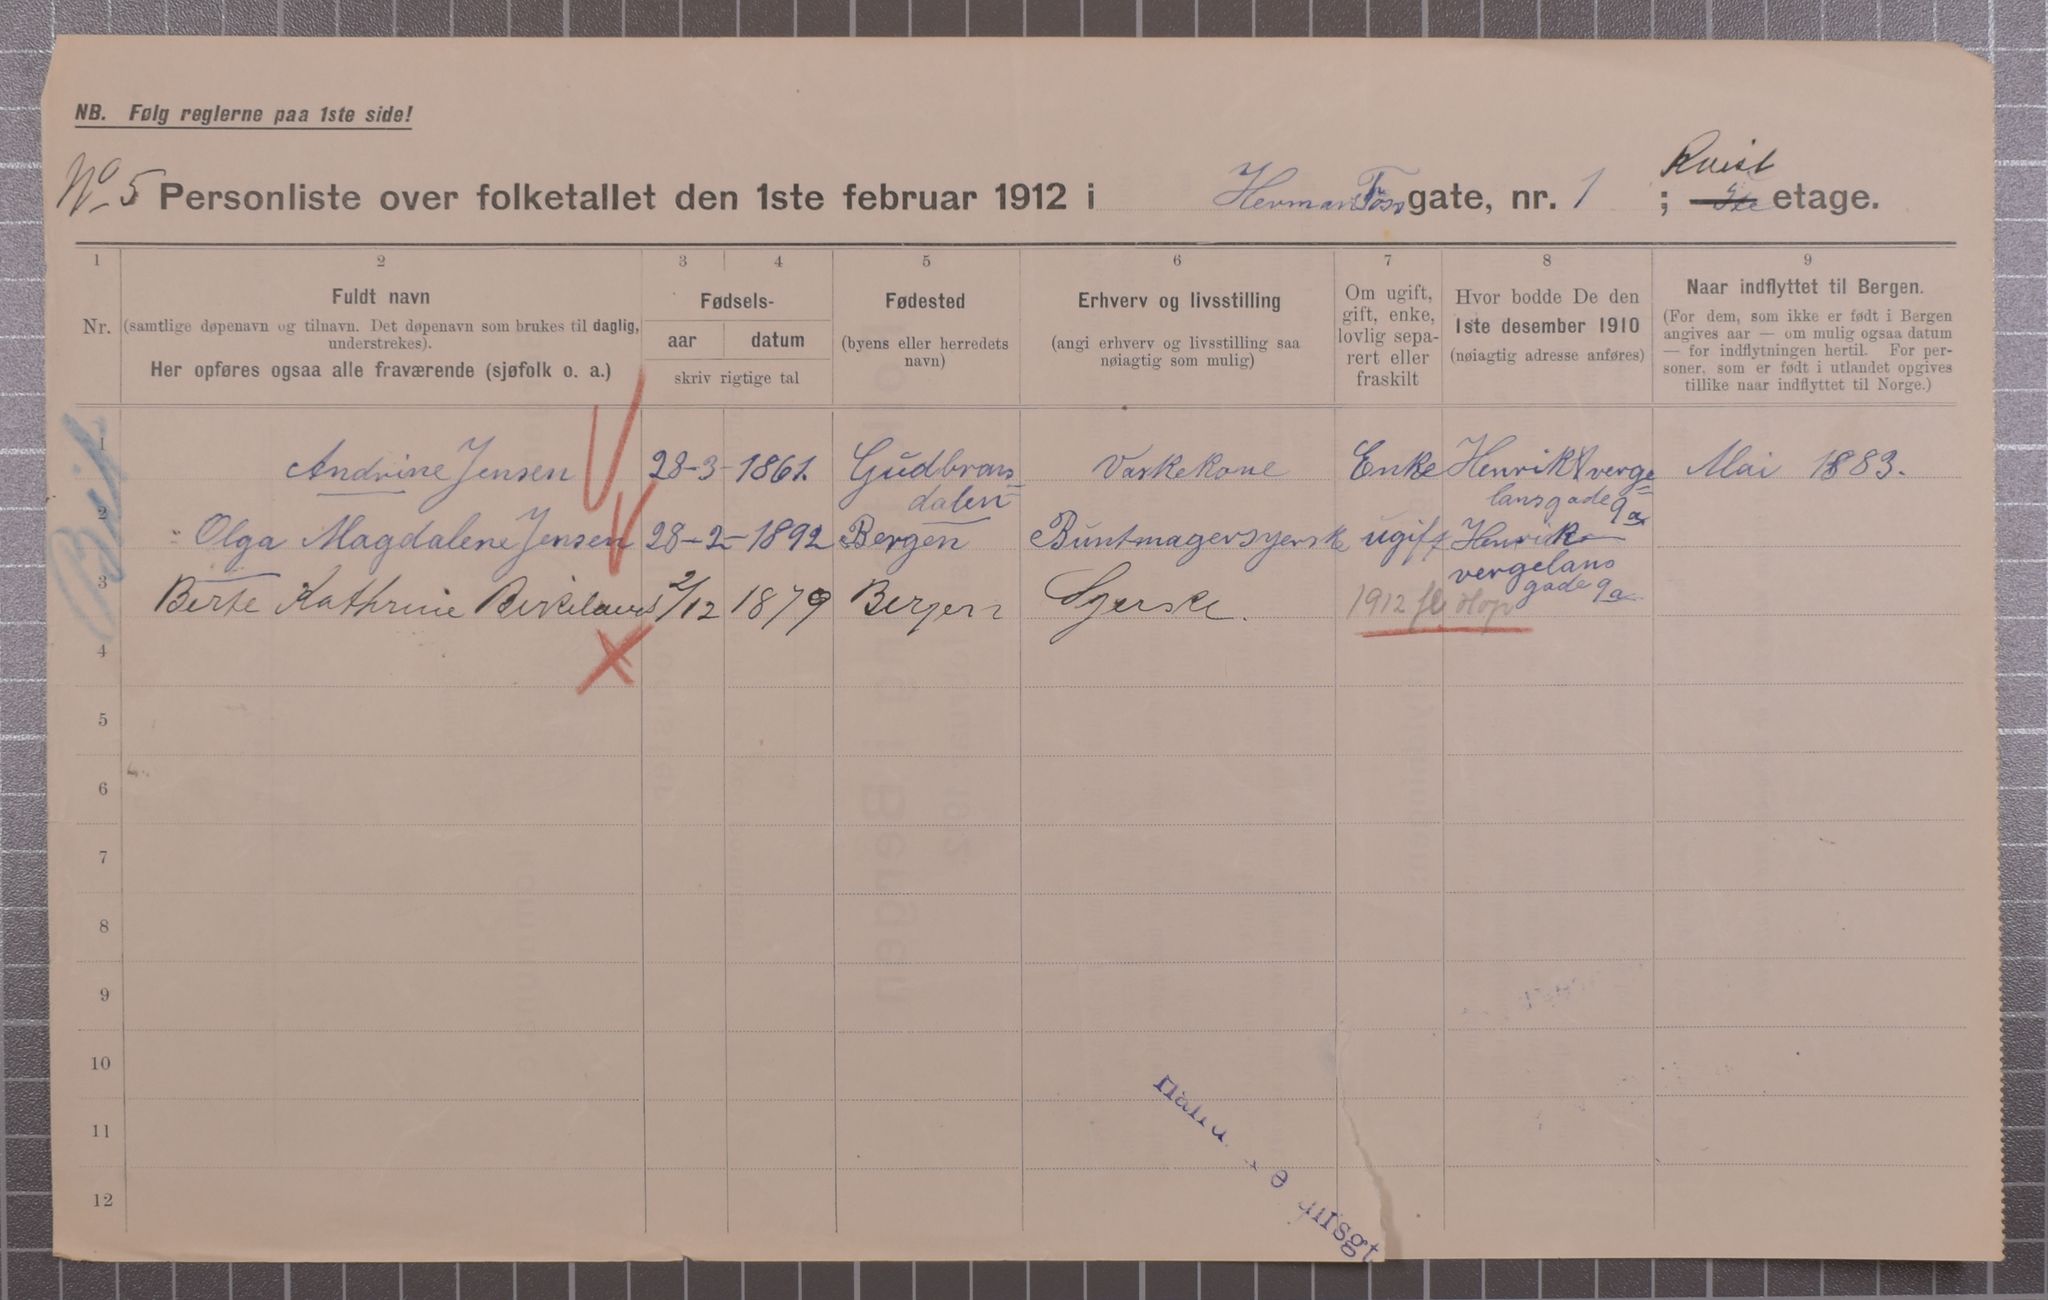 NB. Følg reglerne paa 1ste side!
Kvist
No 5 Personliste over folketallet den 1ste februar 1912 i Herman Foss gate, nr. 1 ; etage.
1 2 3 4 5 6 7 8 9
Nr.
Fuldt navn
(samtlige døpenavn og tilnavn. Det døpenavn som brukes til daglig,
understrekes).
Her opføres ogsaa alle fraværende (sjøfolk o. a.)
Fødsels-
aar datum
skriv rigtige tal
Fødested
(byens eller herredets
navn)
Erhverv og livsstilling
(angi erhverv og livsstilling saa
nøiagtig som mulig)
Om ugift,
gift, enke,
lovlig sepa-
rert eller
fraskilt
Hvor bodde De den
1ste desember 1910
(nøiagtig adresse anføres)
Naar indflyttet til Bergen.
(For dem, som ikke er født i Bergen
angives aar — om mulig ogsaa datum
— for indflytningen hertil. For per-
soner, som er født i utlandet opgives
tillike naar indflyttet til Norge.)
1 Andrine Jensen 28-3-1861. Gudbrans= Vaskekone Enke Henrik Verge= Mai 1883.
dalen lansgade 9a
2 Olga Magdalene Jensen 28-2-1892 Bergen Buntmagersyerske ugift Henrik
vergelans
gade 9a
3 Berte Kathrine Birkeland 2/12 1879 Bergen Syerske. 1912 fl. Hop
4
5
6
7
8
9
10
11
12